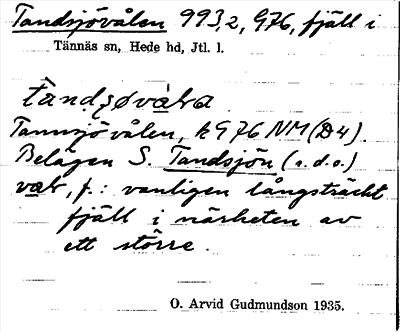 Tandsjövålen 993,2, 976, fjäll i
Tännäs sn, Hede hd, Jtl. l.
Tannsjövålen, h 976 NM (D4).
Belägen S. Tandsjön (s.d.o.)
val, f.: vanligen långsträckt
fjäll i närheten av
ett större.
O. Arvid Gudmundson 1935.